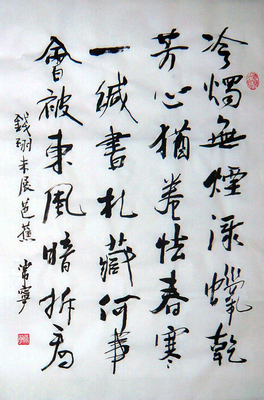 冷燭無煙綠蠟乾
芳心猶卷怯春寒
一緘書札藏何事
會被東風暗拆看
錢珝未展芭蕉